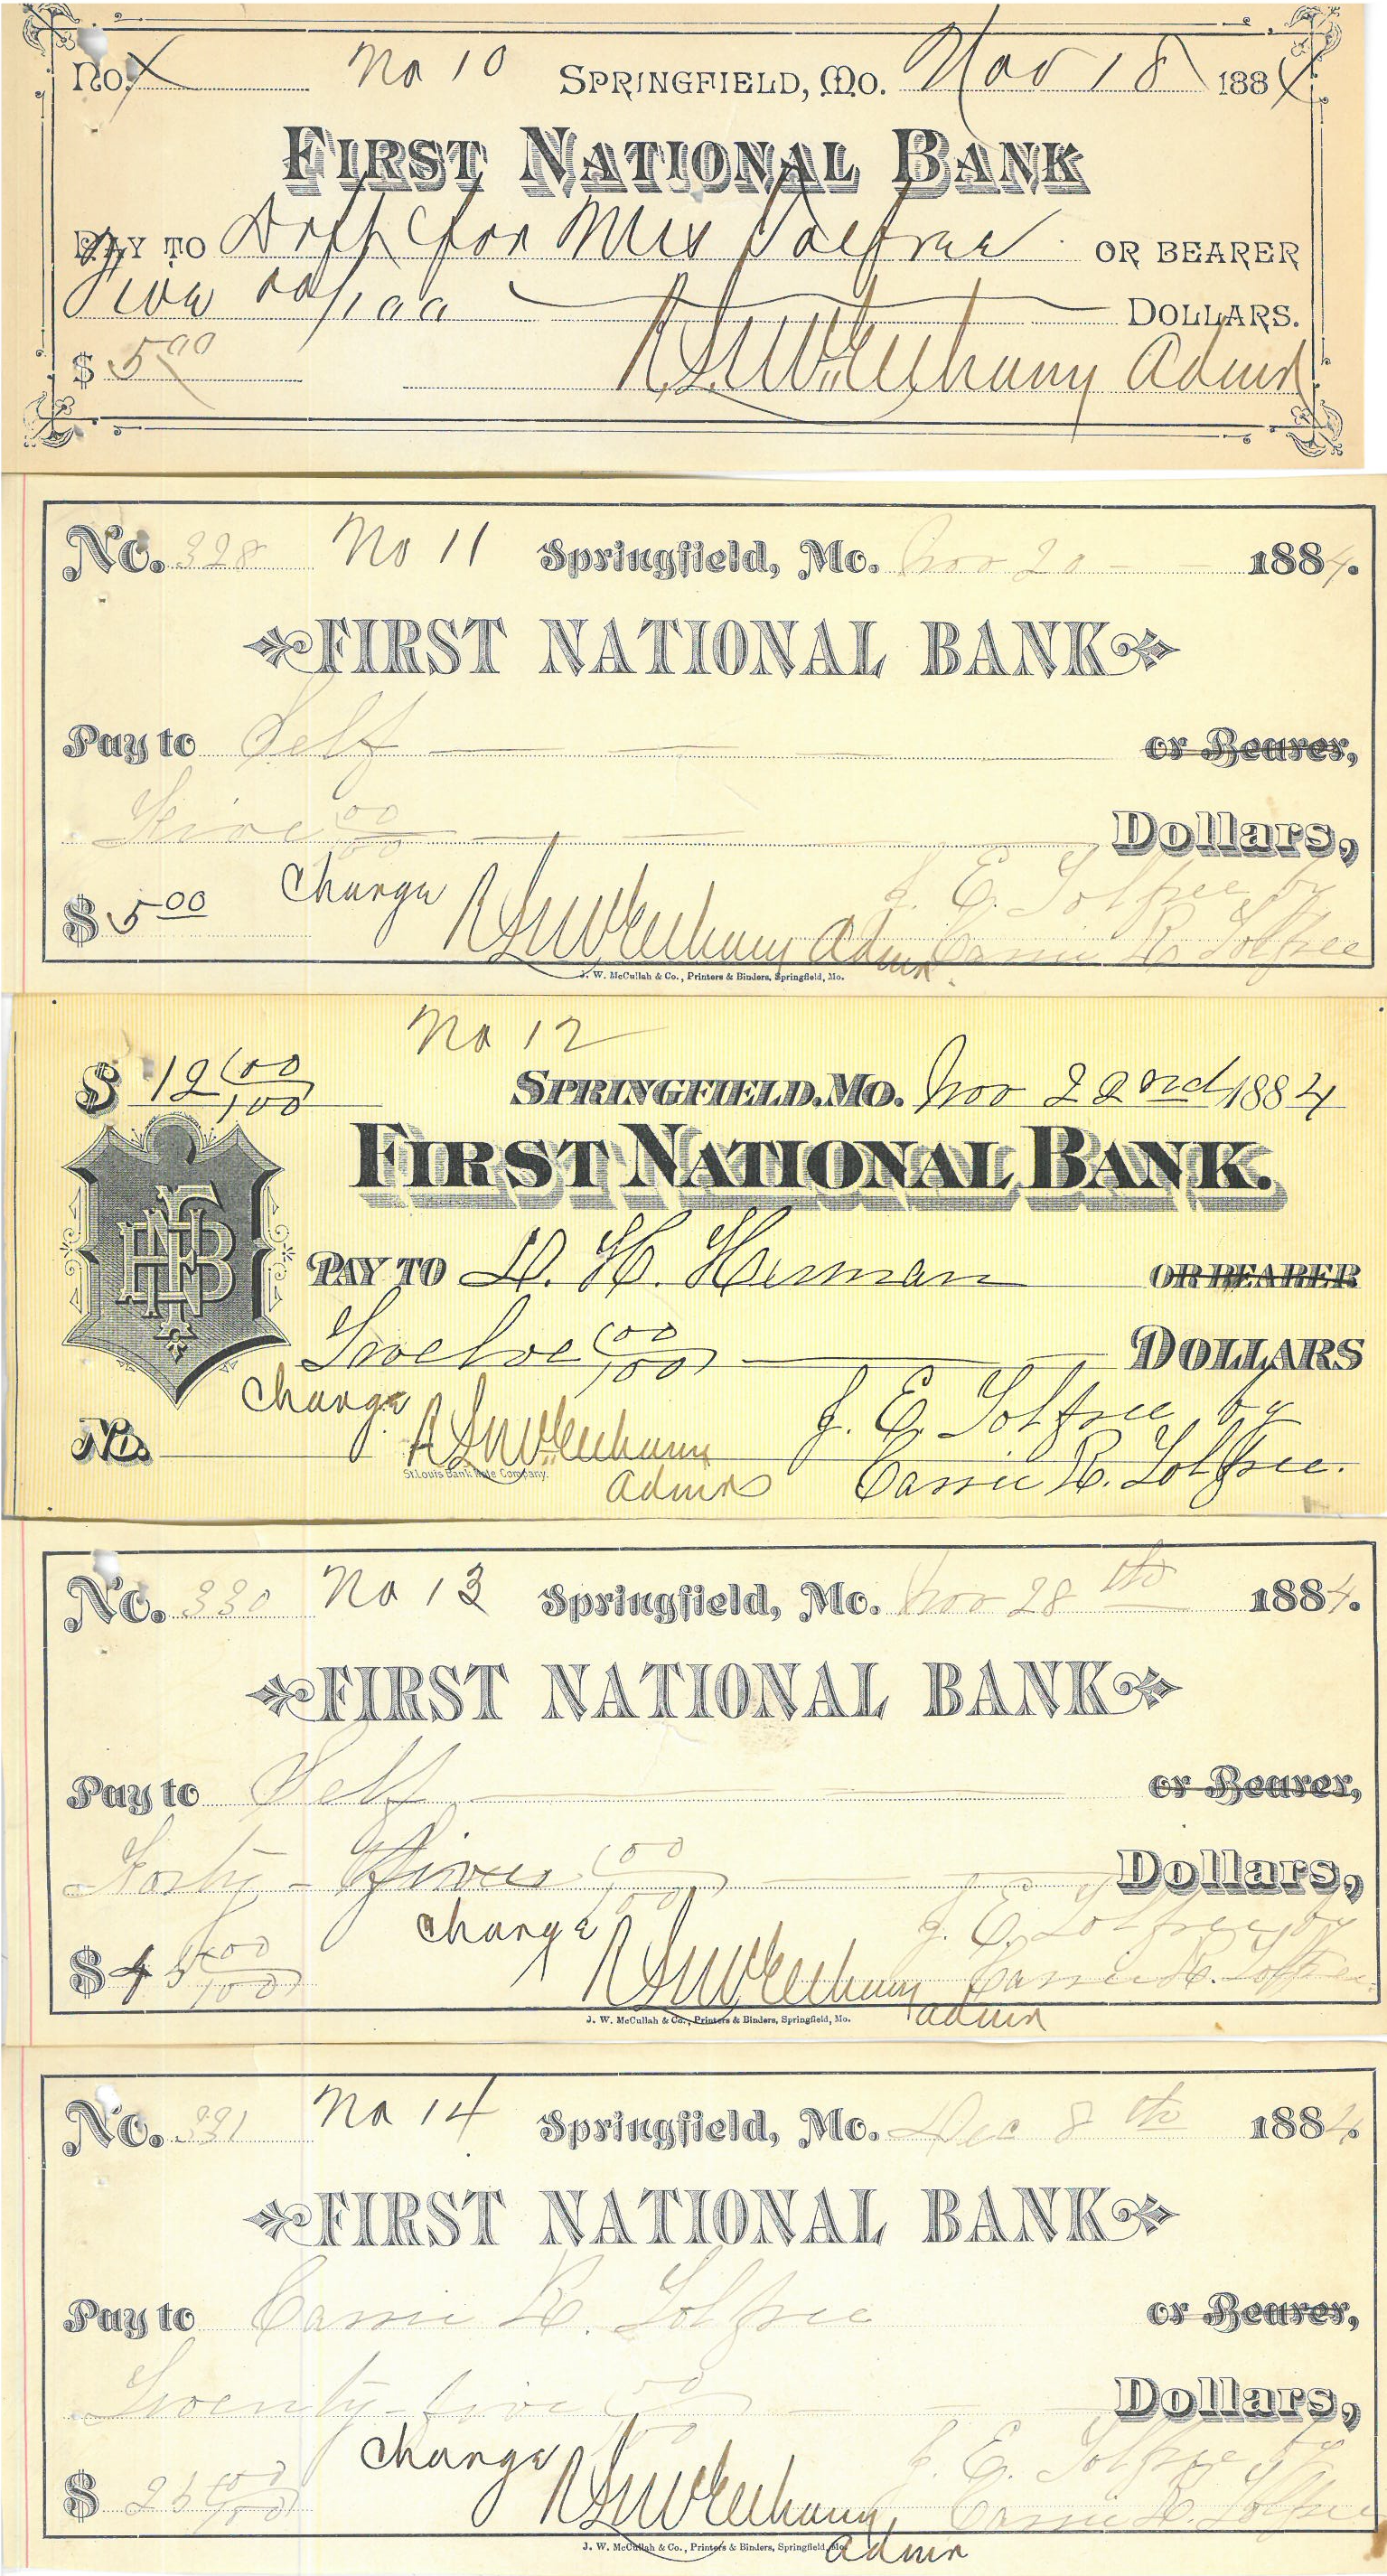 No. X No 10 SPRINGFIELD, MO. Nov 18 1884
FIRST NATIONAL BANK
PAY TO Drft for Mrs Tolfree OR BEARER
Five 00/100 DOLLARS.
$ 5 00 Admr
No. 328 No 11 Springfield, Mo. Nov 20 1884.
FIRST NATIONAL BANK
Pay to Self or Bearer,
Five 00/100 Dollars,
$ 5 00 Charge J. E. Tolfree by
Admr Carrie R. Tolfree
J. W. McCullah & Co., Printers & Binders, Springfield, Mo.
No 12
$ 12 00/100 SPRINGFIELD, MO. Nov 22nd 1884
FIRST NATIONAL BANK.
FNB
PAY TO D. H. Herman OR BEARER
Twelve 00/100 DOLLARS
Charge J. E. Tolfree by
No. Carrie R. Tolfree.
St. Louis Bank Note Company.
Admr
No. 330 No 13 Springfield, Mo. Nov 28th 1884.
FIRST NATIONAL BANK
Pay to Self or Bearer,
Forty-Five 00/100 Dollars,
Charge J. E. Tolfree by
$ 45 00/100 Carrie R. Tolfree
J. W. McCullah & Co., Printers & Binders, Springfield, Mo. Admr
No. 331 No 14 Springfield, Mo. Dec 8th 1884
FIRST NATIONAL BANK
Pay to Carrie R. Tolfree or Bearer,
Twenty-five 00/100 Dollars,
Charge J. E. Tolfree by
$ 25 00/100 Carrie R. Tolfree
J. W. McCullah & Co., Printers & Binders, Springfield, Mo. Admr